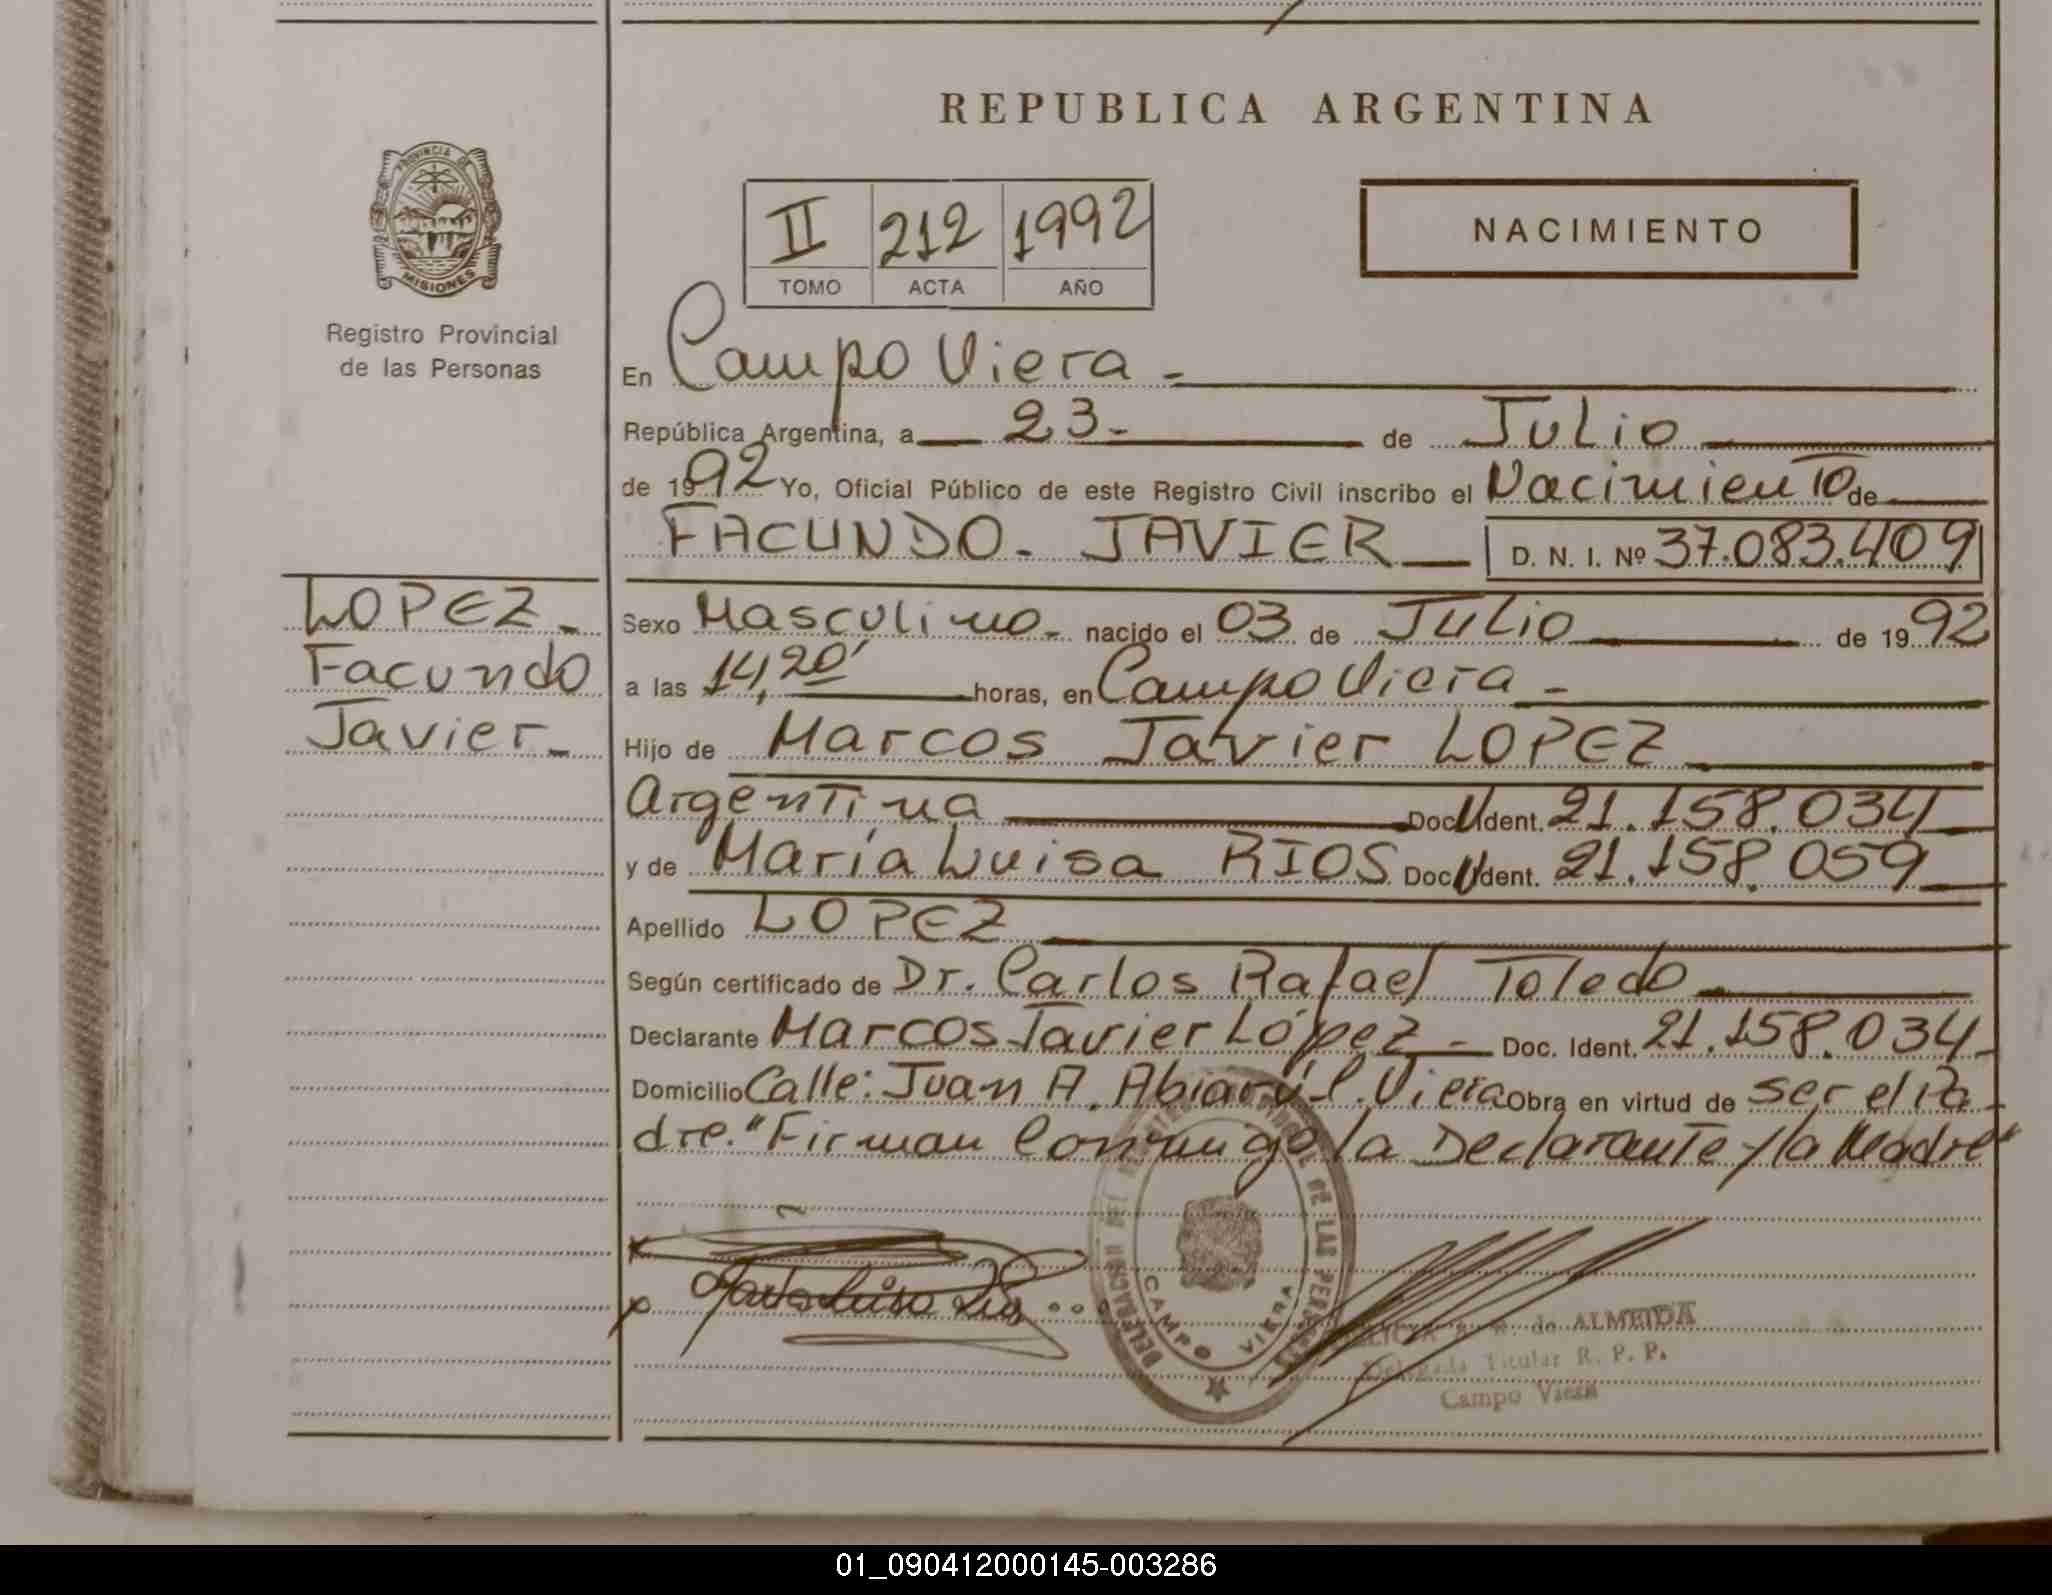 REPUBLICA ARGENTINA
PROVINCIA DE
MISIONES
Registro Provincial
de las Personas
II 212 1992
TOMO ACTA AÑO
NACIMIENTO
En Campo Viera -
República Argentina, a 23- de Julio
de 1992 Yo, Oficial Público de este Registro Civil inscribo el Nacimiento de
FACUNDO - JAVIER D. N. I. Nº 37.083.409
LOPEZ -
Facundo
Javier -
Sexo Masculino - nacido el 03 de Julio de 1992
a las 14,20' horas, en Campo Viera -
Hijo de Marcos Javier LOPEZ
Argentina Doc U Ident. 21.158.034
y de María Luisa RIOS Doc U Ident. 21.158.059
Apellido LOPEZ
Según certificado de Dr. Carlos Rafael Toledo
Declarante Marcos Javier López - Doc. Ident. 21.158.034
Domicilio Calle: Juan A. Viera Obra en virtud de ser el Pa
dre. "Firman Conmigo la Declarante y la Madre"
CAMPO VIERA
DE LAS
de ALMEIDA
Delegada Titular R. P. P.
Campo Viera
01_090412000145-003286